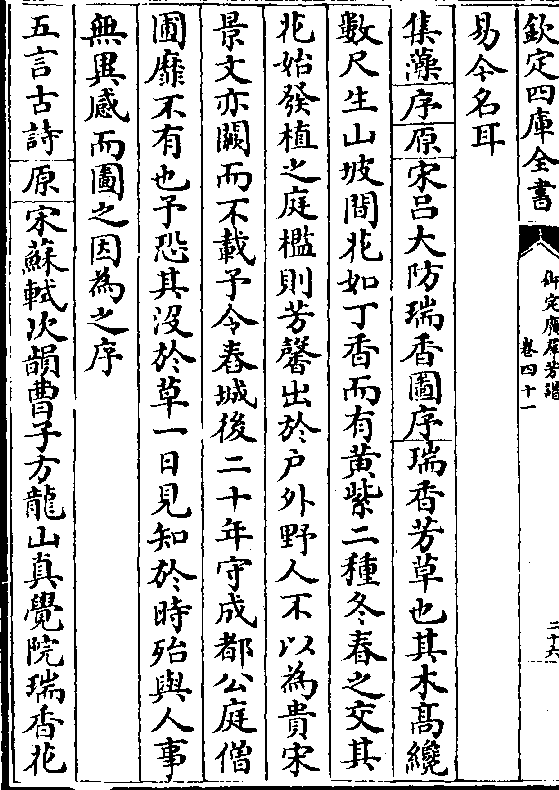 欽定四庫全書
御定廣羣芳譜
卷四十一
二十六
易今名耳
集藻序原宋呂大防瑞香圖序瑞香芳草也其木髙纔
數尺生山坡間花如丁香而有黃紫二種冬春之交其
花始發植之庭檻則芳馨出於户外野人不以為貴宋
景文亦闕而不載予今春城後二十年守成都公庭僧
圃靡不有也予恐其沒於草一日見知於時殆與人事
無異感而圖之因為之序
五言古詩原宋蘇軾次韻曹子方龍山真覺院瑞香花